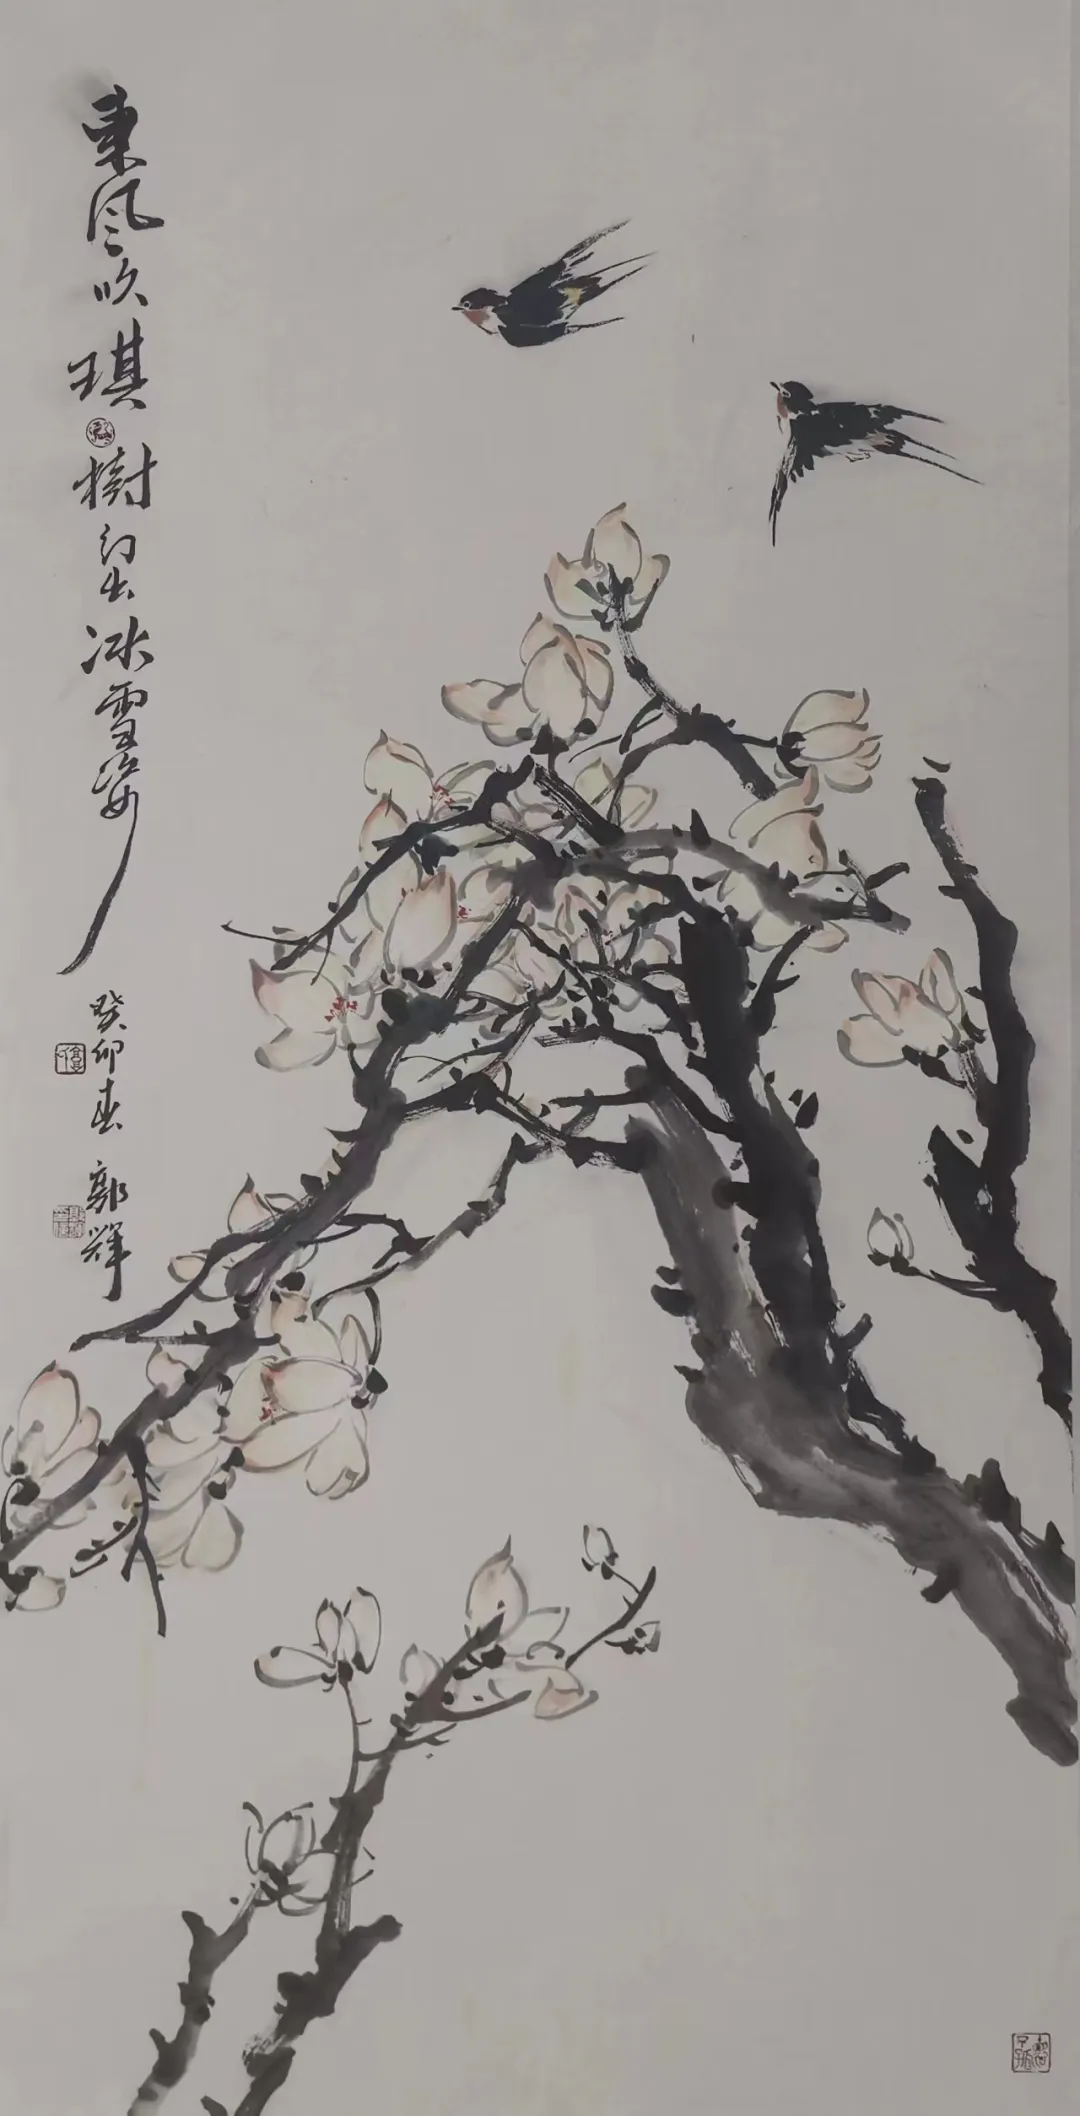 東风吹琪樹幻出冰雪姿
癸卯春
郭辉